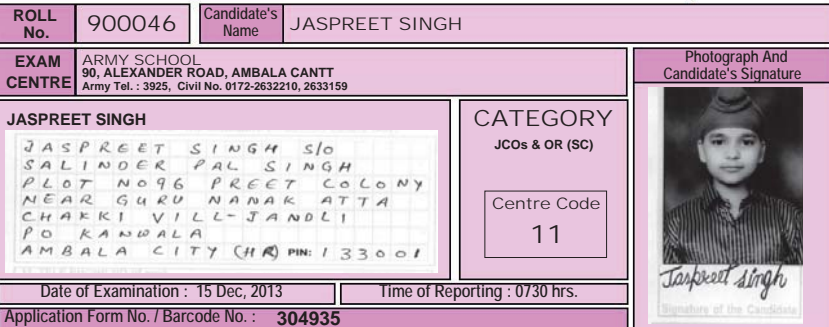 ROLL No. 900046 Candidate's Name JASPREET SINGH
EXAM CENTRE
ARMY SCHOOL
90, ALEXANDER ROAD, AMBALA CANTT
Army Tel. : 3925, Civil No. 0172-2632210, 2633159
Photograph And
Candidate's Signature
JASPREET SINGH
JASPREET SINGH S/O
SALINDER PAL SINGH
PLOT NO96 PREET COLONY
NEAR GURU NANAK ATTA
CHAKKI VILL-JANDLI
PO KANWALA
AMBALA CITY (HR) PIN: 133001
CATEGORY
JCOs & OR (SC)
Centre Code
11
Jaspreet singh
Signature of the Candidate
Date of Examination : 15 Dec, 2013
Time of Reporting : 0730 hrs.
Application Form No. / Barcode No. : 304935